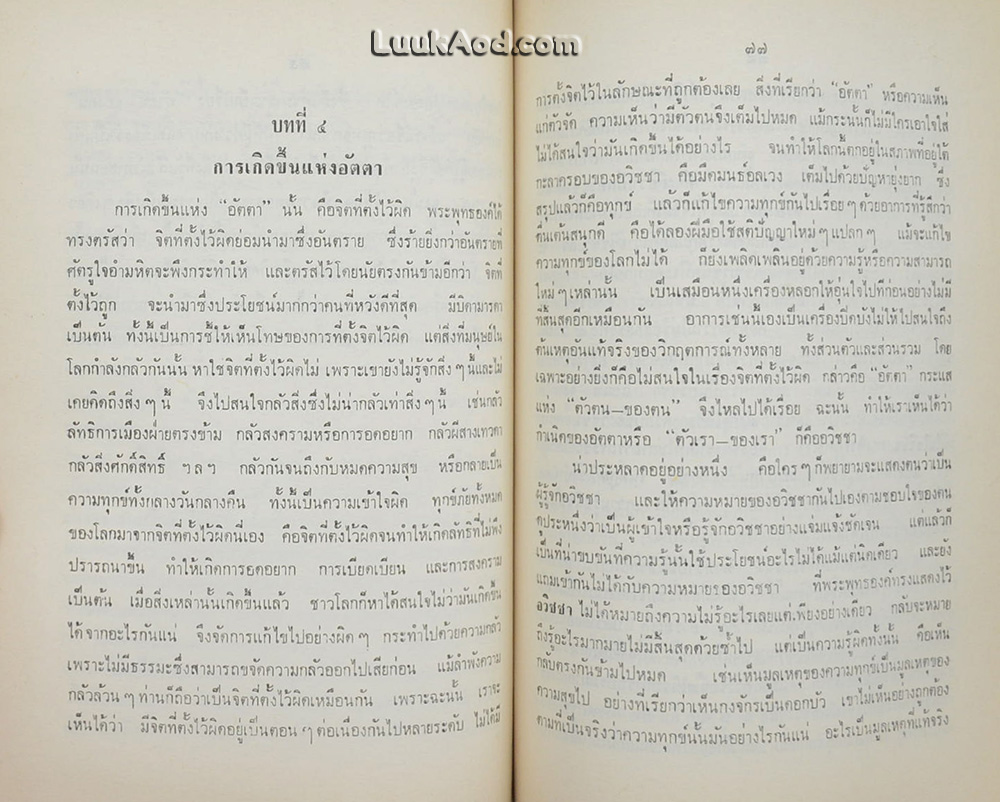 LuukAod.com
บทที่ ๔
การเกิดขึ้นแห่งอัตตา
การเกิดขึ้นแห่ง “อัตตา” นั้น คือจิตที่ตั้งไว้ผิด พระพุทธองค์ได้
ทรงตรัสว่า จิตที่ตั้งไว้ผิดย่อมนำมาซึ่งอันตราย ซึ่งร้ายยิ่งกว่าอันตรายที่
ศัตรูใจอำมหิตจะพึงกระทำให้ และตรัสไว้โดยนัยตรงกันข้ามอีกว่า จิตที่
ตั้งไว้ถูก จะนำมาซึ่งประโยชน์มากกว่าคนที่หวังดีที่สุด มีบิดามารดา
เป็นต้น ทั้งนี้เป็นการชี้ให้เห็นโทษของการตั้งจิตไว้ผิด แต่สิ่งที่มนุษย์ใน
โลกกำลังกลัวกันนั้น หาใช่จิตที่ตั้งไว้ผิดไม่ เพราะเขายังไม่รู้จักสิ่ง ๆ นี้และไม่
เคยคิดถึงสิ่ง ๆ นี้ จึงไปสนใจกลัวสิ่งซึ่งไม่น่ากลัวเท่าสิ่ง ๆ นี้ เช่นกลัว
ลัทธิการเมืองฝ่ายตรงข้าม กลัวสงครามหรือการอดอยาก กลัวผีสางเทวดา
กลัวสิ่งศักดิ์สิทธิ์ ฯลฯ กลัวกันจนถึงกับหมดความสุข หรือกลายเป็น
ความทุกข์ทั้งกลางวันกลางคืน ทั้งนี้เป็นความเข้าใจผิด ทุกข์ภัยทั้งหมด
ของโลกมาจากจิตที่ตั้งไว้ผิดนี่เอง คือจิตที่ตั้งไว้ผิดจนทำให้เกิดลัทธิที่ไม่พึง
ปรารถนาขึ้น ทำให้เกิดการอดอยาก การเบียดเบียน และการสงคราม
เป็นต้น เมื่อสิ่งเหล่านั้นเกิดขึ้นแล้ว ชาวโลกก็หาได้สนใจไม่ว่ามันเกิดขึ้น
ได้จากอะไรกันแน่ จึงจัดการแก้ไขไปอย่างผิด ๆ กระทำไปด้วยความกลัว
เพราะไม่มีธรรมะซึ่งสามารถขจัดความกลัวออกไปเสียก่อน แม้ลำพังความ
กลัวล้วน ๆ ท่านก็ถือว่าเป็นจิตที่ตั้งไว้ผิดเหมือนกัน เพราะฉะนั้น เราจะ
เห็นได้ว่า มีจิตที่ตั้งไว้ผิดอยู่เป็นตอน ๆ ต่อเนื่องกันไปหลายระดับ ไม่ได้มี
๗๗
การตั้งจิตไว้ในลักษณะที่ถูกต้องเลย สิ่งที่เรียกว่า “อัตตา” หรือความเห็น
แก่ตัวจัด ความเห็นว่ามีตัวตนจึงเต็มไปหมด แม้กระนั้นก็ไม่มีใครเอาใจใส่
ไม่ได้สนใจว่ามันเกิดขึ้นได้อย่างไร จนทำให้โลกนี้ตกอยู่ในสภาพที่อยู่ใต้
กะลาครอบของอวิชชา คือมืดมนธ์อลเวง เต็มไปด้วยปัญหายุ่งยาก ซึ่ง
สรุปแล้วก็คือทุกข์ แล้วก็แก้ไขความทุกข์กันไปเรื่อย ๆ ด้วยอาการที่รู้สึกว่า
ตื่นเต้นสนุกดี คือได้ลองฝีมือใช้สติปัญญาใหม่ ๆ แปลก ๆ แม้จะแก้ไข
ความทุกข์ของโลกไม่ได้ ก็ยังเพลิดเพลินอยู่ด้วยความรู้หรือความสามารถ
ใหม่ ๆ เหล่านั้น เป็นเสมือนหนึ่งเครื่องหลอกให้อุ่นใจไปทีก่อนอย่างไม่มี
ที่สิ้นสุดอีกเหมือนกัน อาการเช่นนี้เองเป็นเครื่องปิดบังไม่ให้ไปสนใจถึง
ต้นเหตุอันแท้จริงของวิกฤตการณ์ทั้งหลาย ทั้งส่วนตัวและส่วนรวม โดย
เฉพาะอย่างยิ่งก็คือไม่สนใจในเรื่องจิตที่ตั้งไว้ผิด กล่าวคือ “อัตตา” กระแส
แห่ง “ตัวตน—ของตน” จึงไหลไปได้เรื่อย ฉะนั้น ทำให้เราเห็นได้ว่า
กำเนิดของอัตตาหรือ “ตัวเรา—ของเรา” ก็คืออวิชชา
น่าประหลาดอยู่อย่างหนึ่ง คือใคร ๆ ก็พยายามจะแสดงตนว่าเป็น
ผู้รู้จักอวิชชา และให้ความหมายของอวิชชากันไปเองตามชอบใจของตน
ดุประหนึ่งว่าเป็นผู้เข้าใจหรือรู้จักอวิชชาอย่างแจ่มแจ้งชัดเจน แต่แล้วก็
เป็นที่น่าขบขันที่ความรู้นั้นใช้ประโยชน์อะไรไม่ได้แม้แต่นิดเดียว และยัง
แถมเข้ากันไม่ได้กับความหมายของอวิชชา ที่พระพุทธองค์ทรงแสดงไว้
อวิชชา ไม่ได้หมายถึงความไม่รู้อะไรเลยแต่เพียงอย่างเดียว กลับจะหมาย
ถึงรู้อะไรมากมายไม่มีสิ้นสุดด้วยซ้ำไป แต่เป็นความรู้ผิดทั้งนั้น คือเห็น
กลับตรงกันข้ามไปหมด เช่นเห็นมูลเหตุของความทุกข์เป็นมูลเหตุของ
ความสุขไป อย่างที่เรียกว่าเห็นกงจักรเป็นดอกบัว เขาไม่เห็นอย่างถูกต้อง
ตามที่เป็นจริงว่าความทุกข์นั้นมันอย่างไรกันแน่ อะไรเป็นมูลเหตุที่แท้จริง